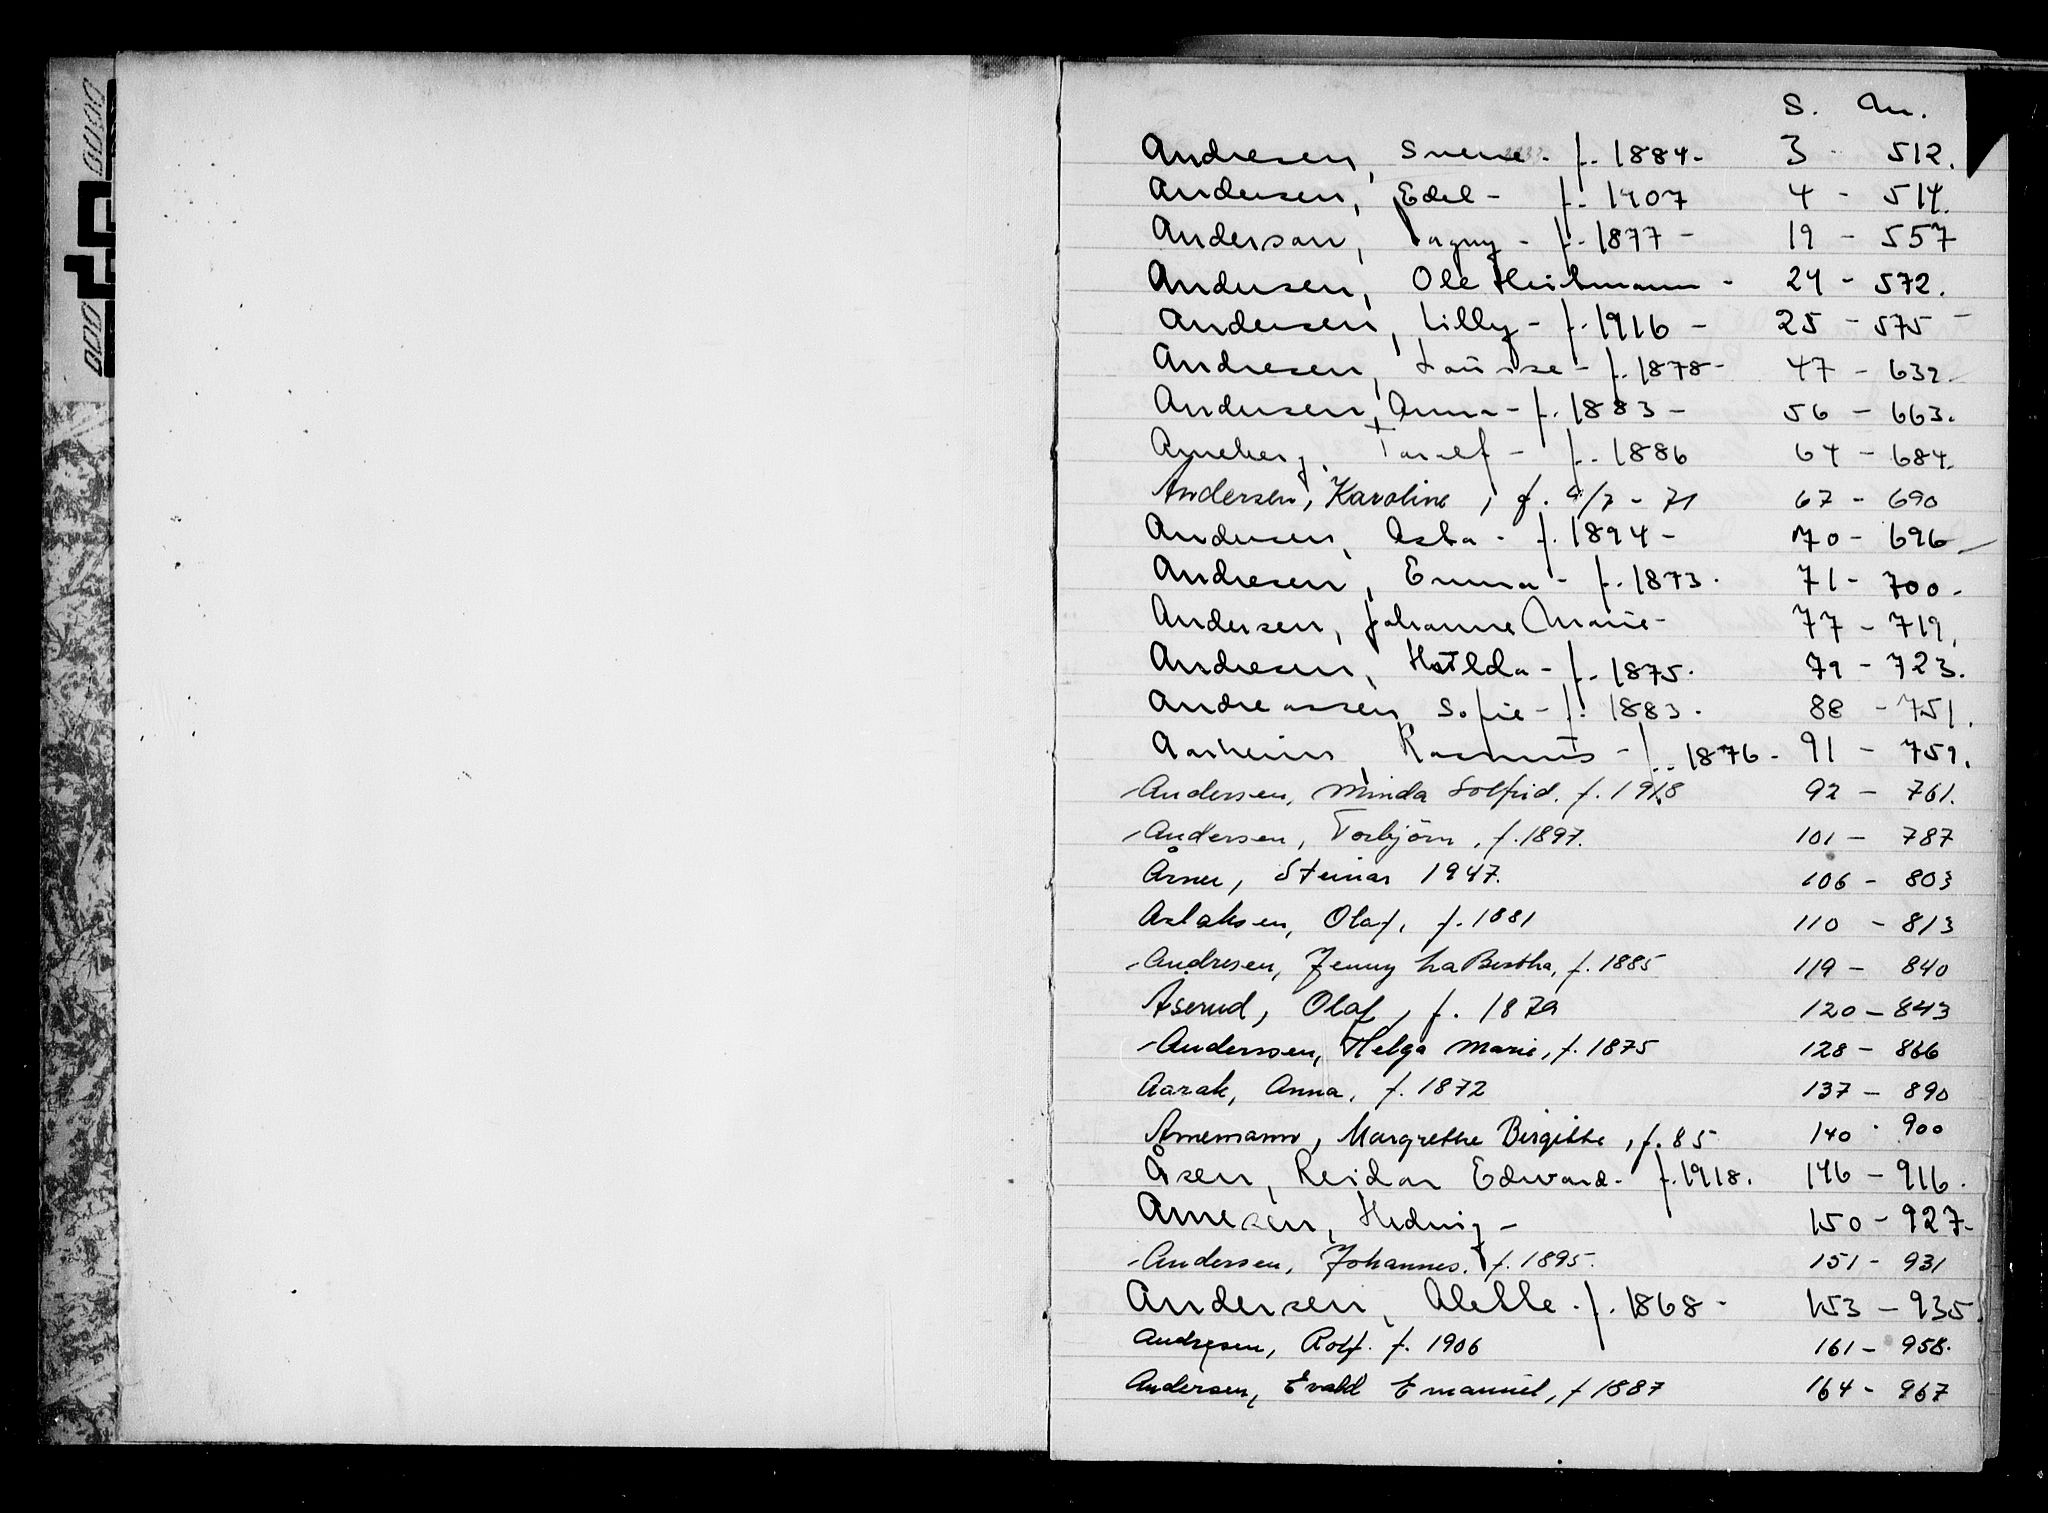 S. Nr.
Andresen, Sverre - f. 1884 - 3 - 512.
Andersen, Edel - f. 1907 4 - 514.
Anderson, Dagny - f. 1877 - 19 - 557
Andersen, Ole - 24 - 572.
Andersen, Lilly - f. 1916 - 25 - 575 -
Andresen, Louise - f. 1878 - 47 - 639
Andersen, Anna - f. 1883 - 56 - 663.
f. 1886 64 - 684.
Andersen, Karoline, f. 9/7 - 71 67 - 690
Andersen, Asta - f. 1894 - 70 - 696
Andresen, Emma - f. 1873. 71 - 700.
Andersen, Johanne Marie - 77 - 719.
Andresen, Hilda - f. 1875. 79 - 723.
Andreassen, Sofie - f. 1883. 88 - 751.
Aarheim, Rasmus - f. 1876 - 91 - 759.
Andersen, Minda Solfrid. f. 1918 92 - 761.
Andersen, Torbjörn, f. 1897. 101 - 787
Årnes, Steinar 1947. 106 - 803
Aslaksen, Olaf, f. 1881 110 - 813
Andresen, Jenny La Bertha, f. 1885 119 - 840
Åserud, Olaf, f. 1879 120 - 843
Anderssen, Helga Marie, f. 1875 128 - 866
Aarak, Anna, f. 1872 137 - 890
Arnemann, Margrethe Birgitte, f. 85 140 - 900
Åsen, Reidar Edvard - f. 1918. 146 - 916.
Arnesen, Hedvig - 150 - 927.
Andersen, Johannes, f. 1895. 151 - 931
Andersen, Alette - f. 1868 - 153 - 935
Andresen, Rolf. f. 1906 161 - 958.
Andersen, Evald Emanuel, f 1887 164 - 967